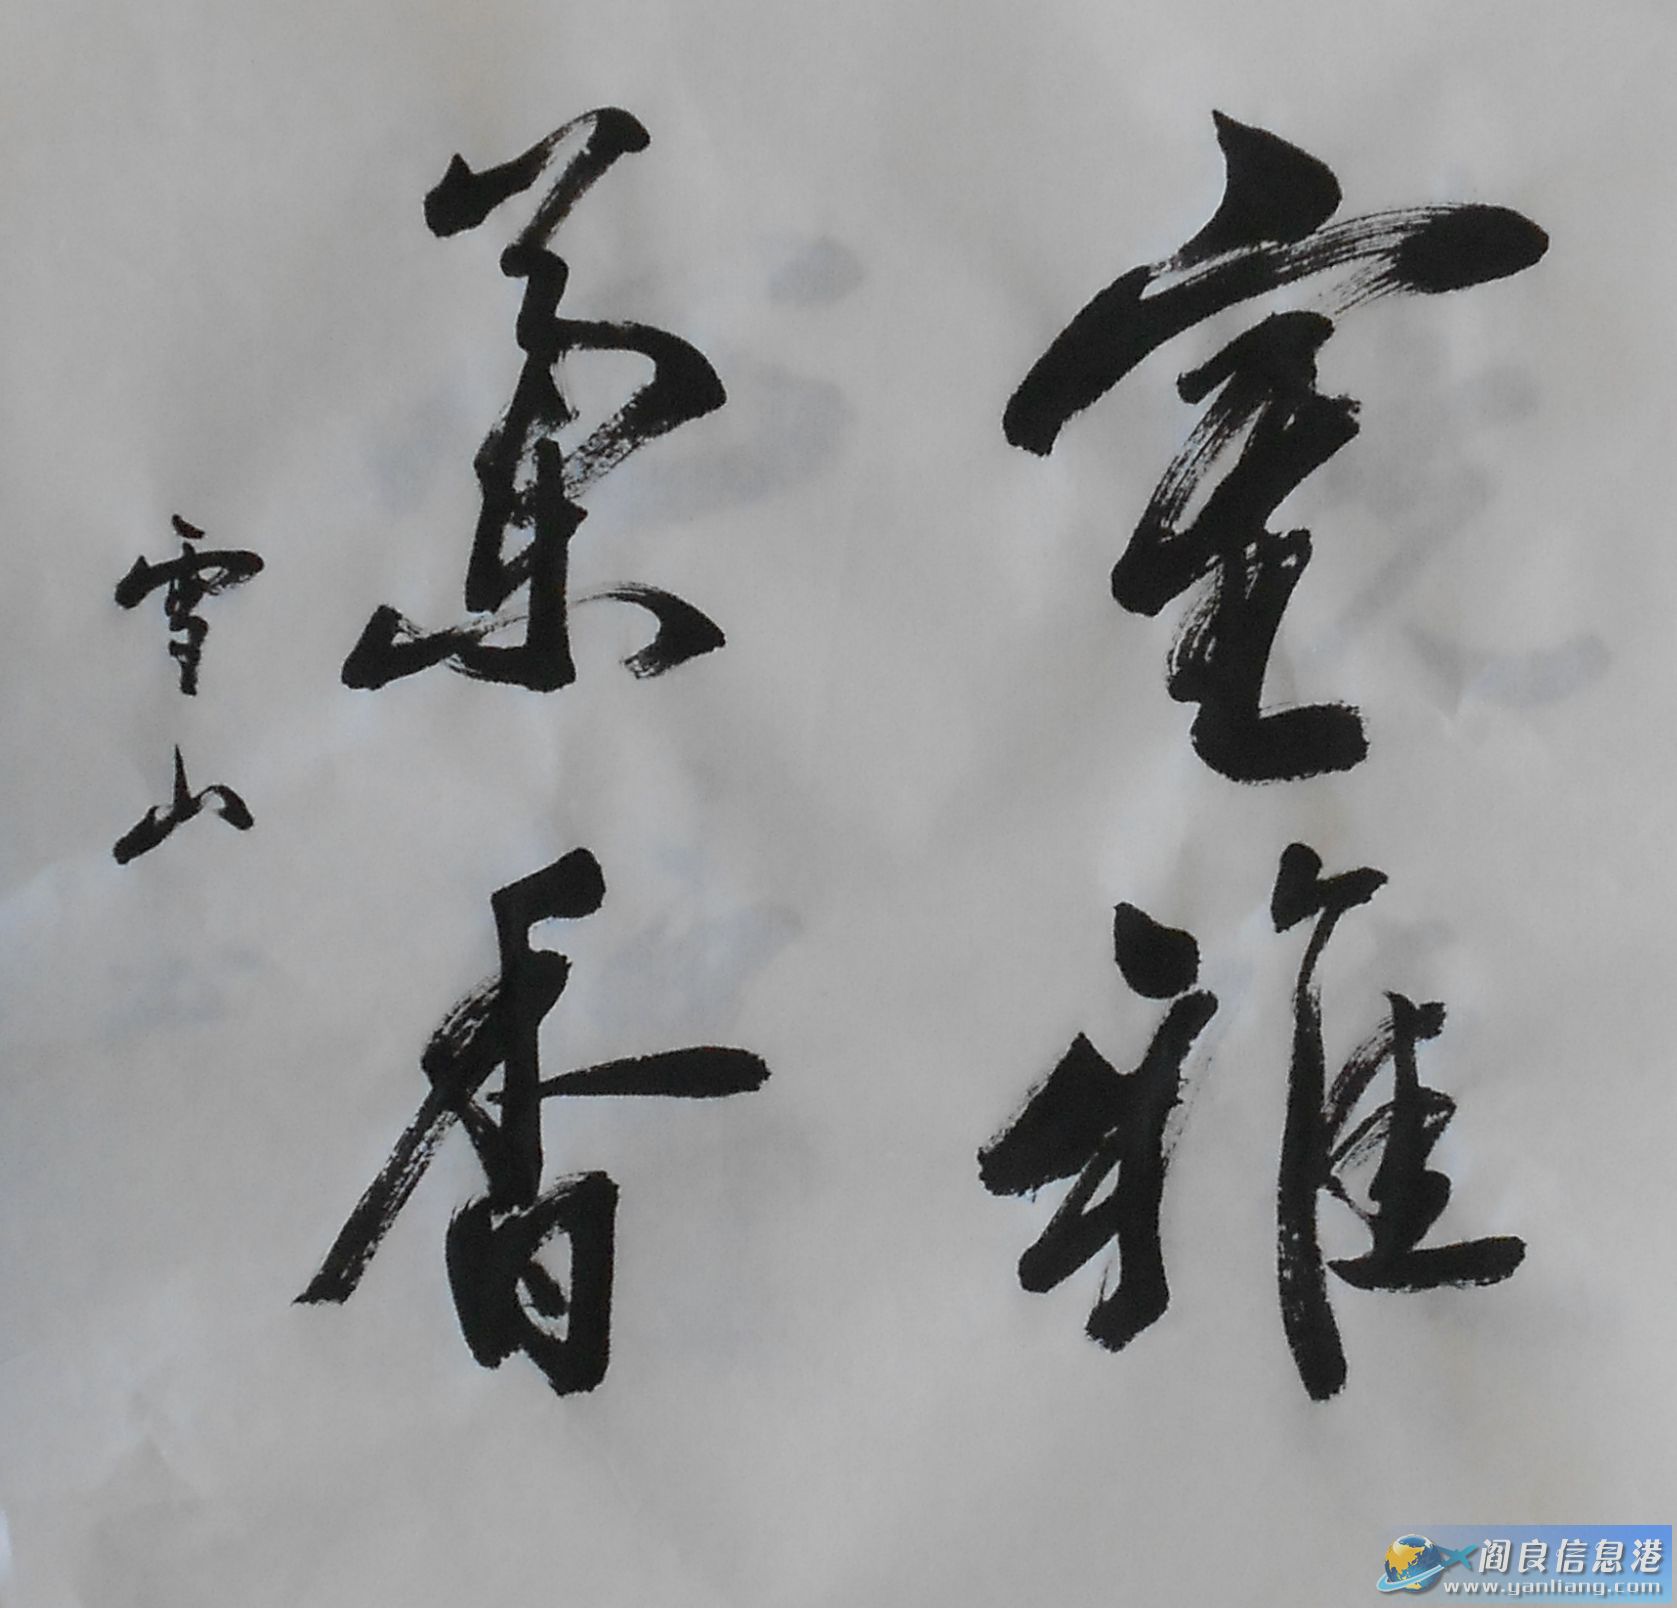 室雅
兰香
雪山
阎良信息港
www.yanliang.com